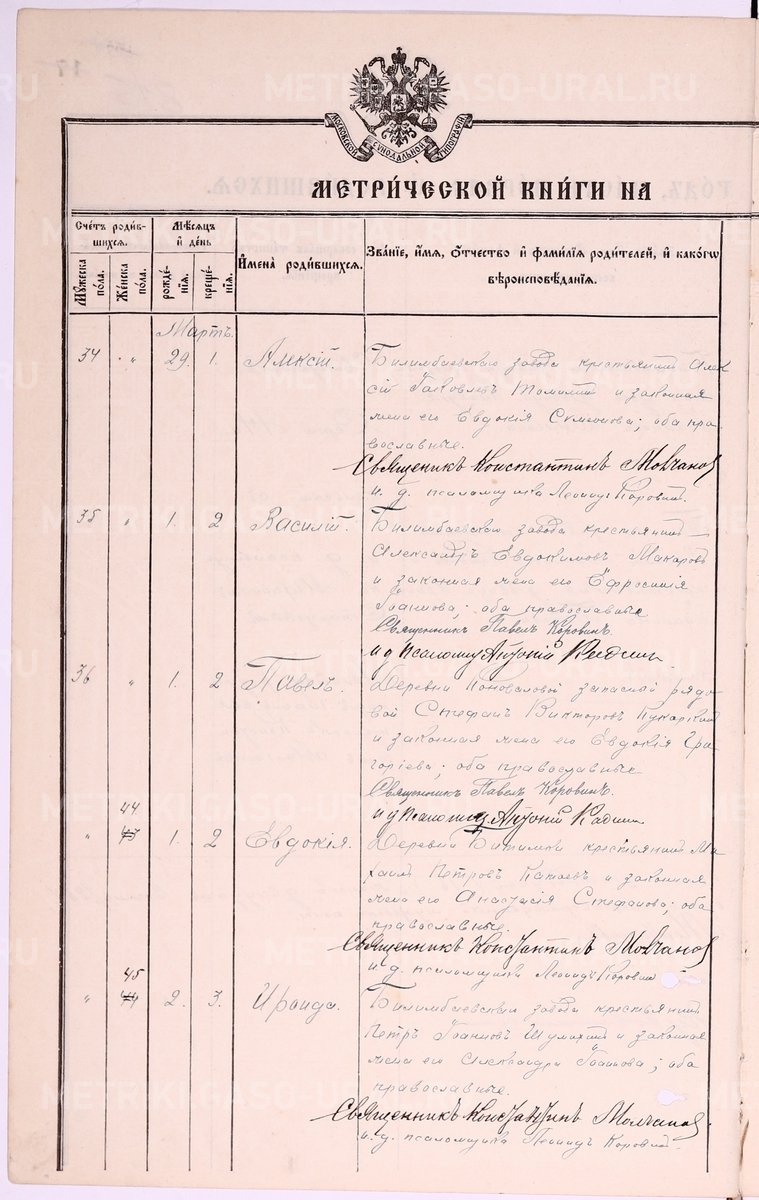 МОСКОВСКОЙ СУНОДАЛЬНОЙ ТИПОГРАФІИ
МЕТРИ́ЧЕСКОЙ КНИ́ГИ НА
Счетъ роди́в-
шихся.
Мѣсяцъ
и҆ де́нь
И҆мена̀ роди́вшихся.
Зва́нїе, и҆́мѧ, ѻ҆́тчество и҆ фами́лїѧ роди́телей, и҆ како́гѡ
вѣроисповѣ́данїѧ.
Мꙋжеска по́ла.
Же́нска по́ла.
рожде́нїѧ.
креще́нїѧ.
Мартъ.
34 " 29. 1. Алексій. Билимбаевскаго завода крестьянинъ Алек
сій Іаковлевъ Томилинъ и законная
жена его Евдокія Семенова; оба пра-
вославные.
Священникъ Константинъ Молчановъ
и. д. псаломщика Леонидъ Коровинъ.
35 " 1. 2 Василій. Билимбаевскаго завода крестьянинъ
Александръ Евдокимовъ Макаровъ
и законная жена его Ефросинія
Іоаннова; оба православные
Священникъ Павелъ Коровинъ.
и д псаломщ Антоній
36 " 1. 2 Павелъ. Деревни Коноваловой запасной рядо
вой Стефанъ Викторовъ
и законная жена его Евдокія Гри
горіева; оба православные
Священникъ Павелъ Коровинъ.
и д псаломщ Антоній
44
" 43 1. 2 Евдокія. Деревни Битимки крестьянинъ Ми
хаилъ Петровъ Катаевъ и законная
жена его Анастасія Стефанова; оба
православные.
Священникъ Константинъ Молчановъ
и. д. псаломщика Леонидъ Коровин
45
" 44 2. 3. Ираида. Билимбаевскаго завода крестьянинъ
Петръ Іоанновъ и законная
жена его Александра Іоаннова; оба
православные.
Священникъ Константинъ Молчановъ
и. д. псаломщика Леонидъ Коровинъ.
METRIKI.GASO-URAL.RU